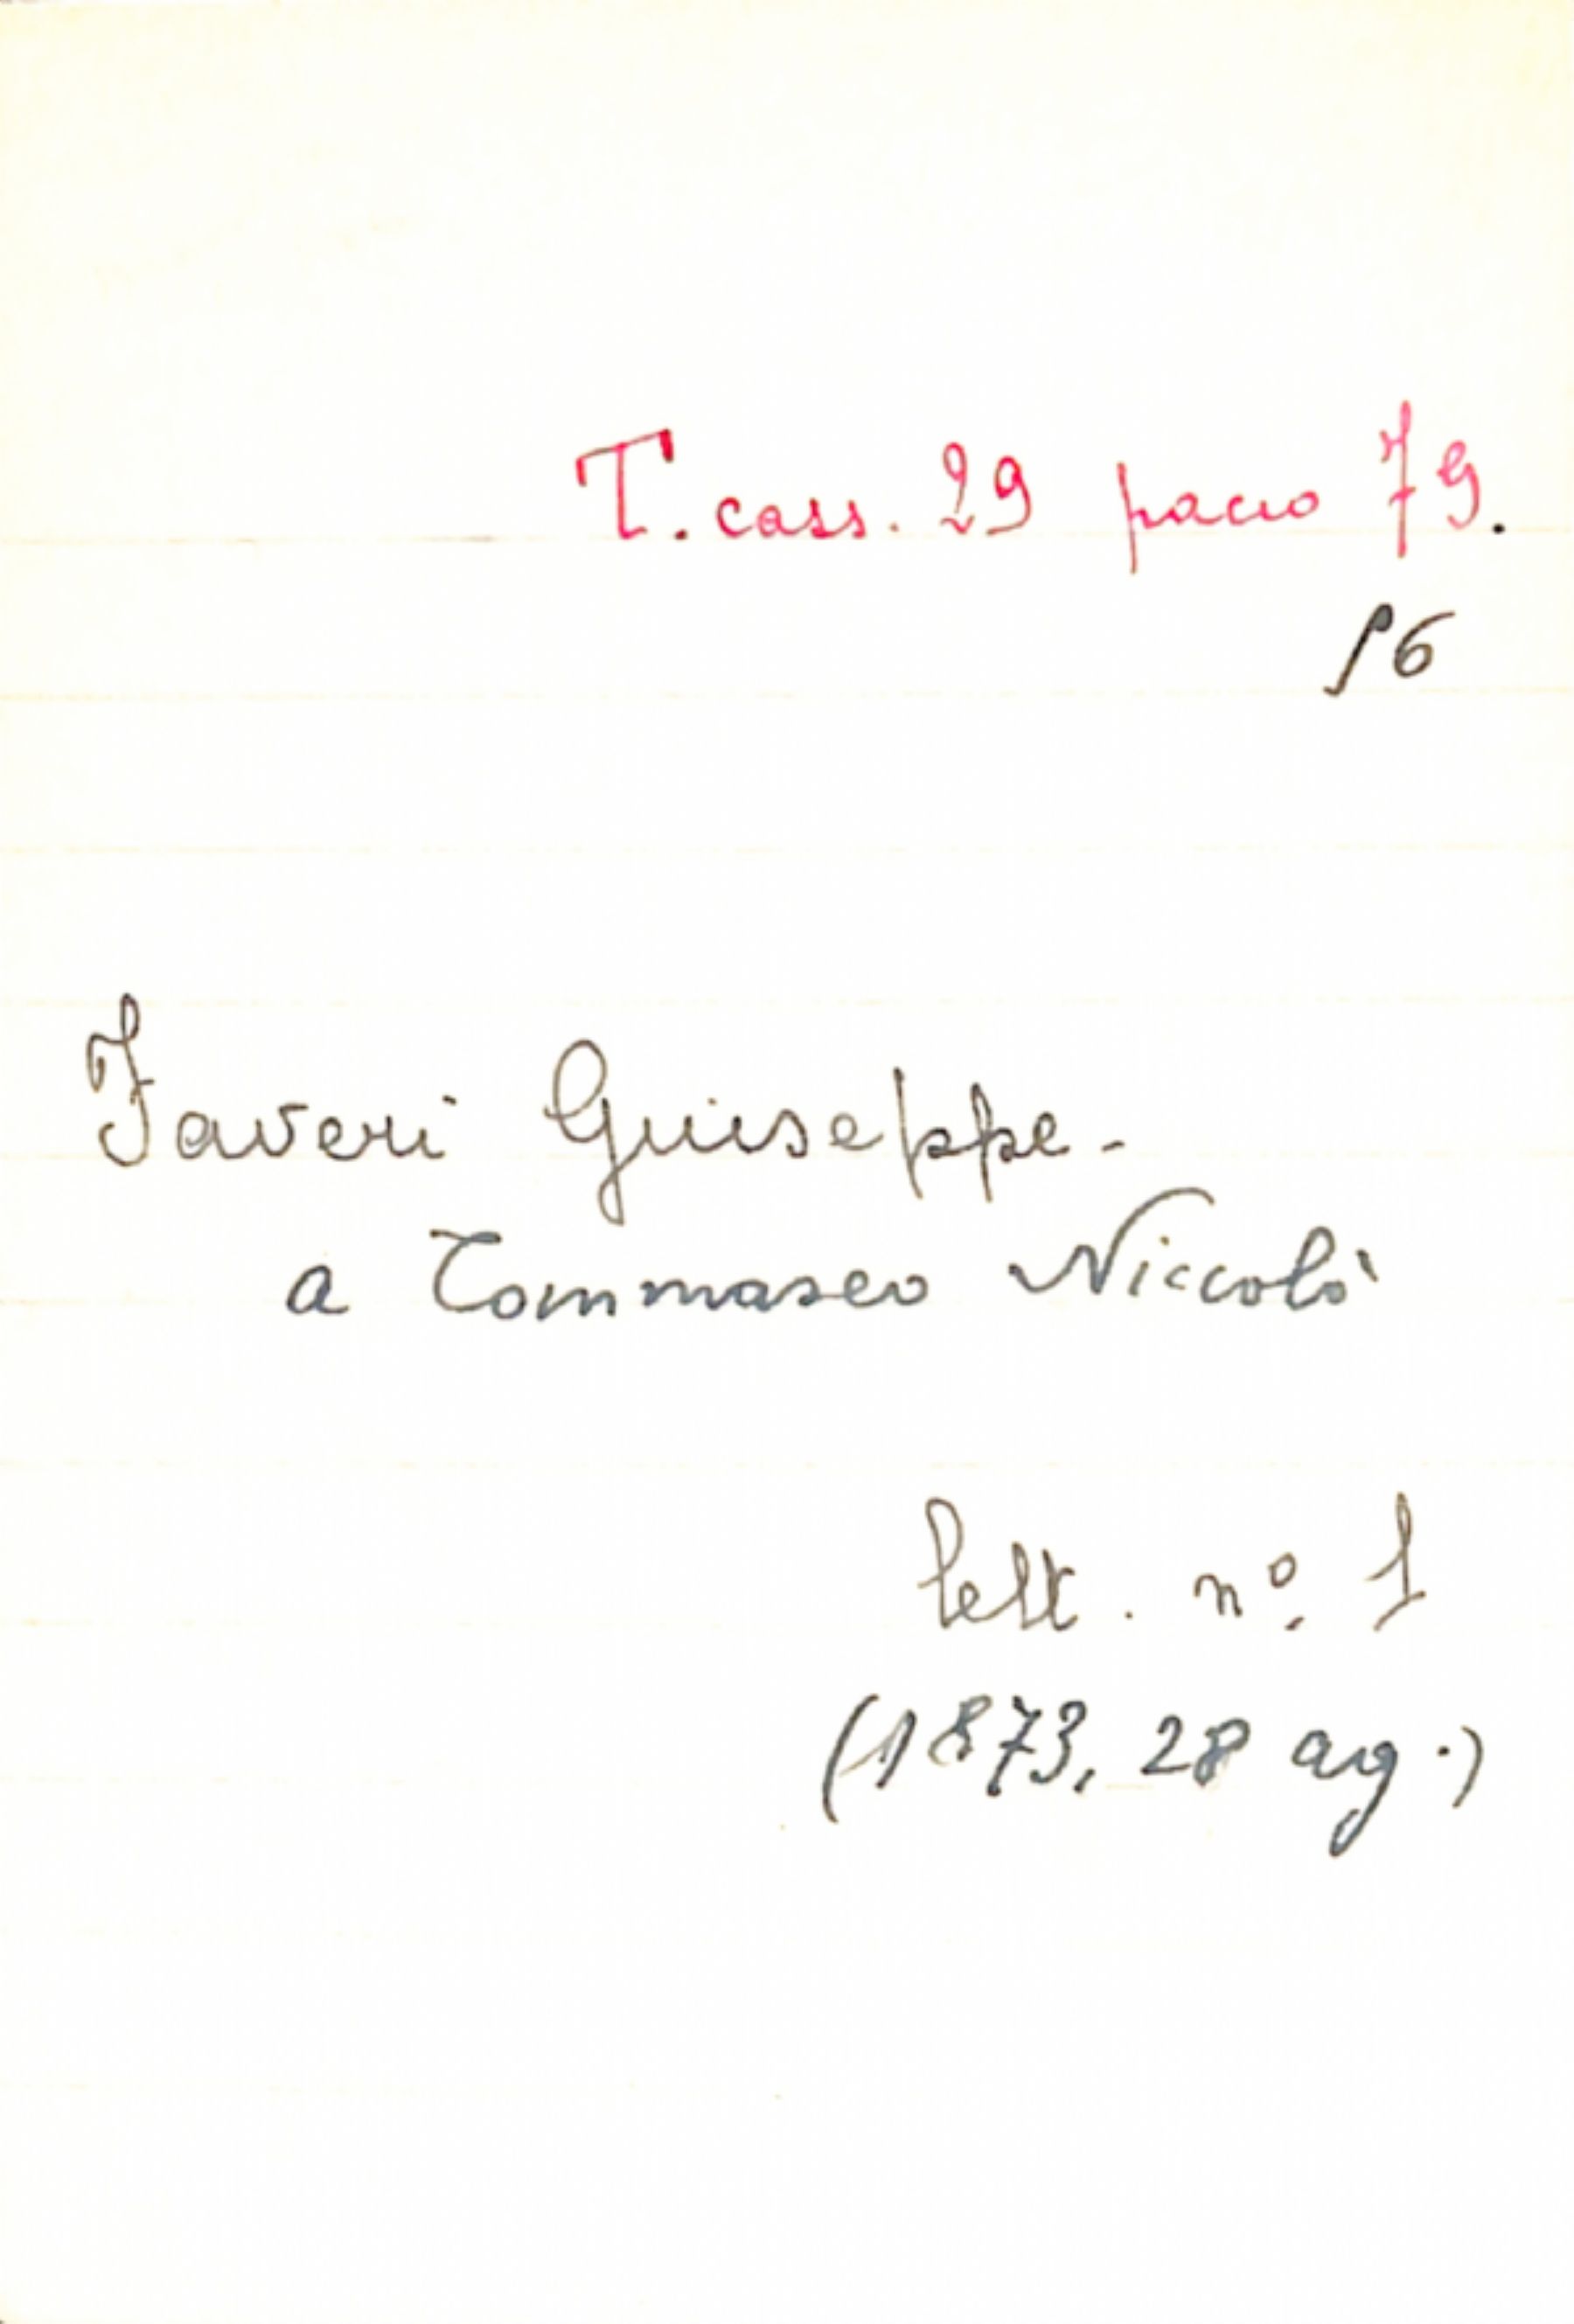 T. cass. 29 pacco 79.
56
Faveri Giuseppe -
a Tommaseo Niccolò
lett. nº 1
(1873, 28 ag.)